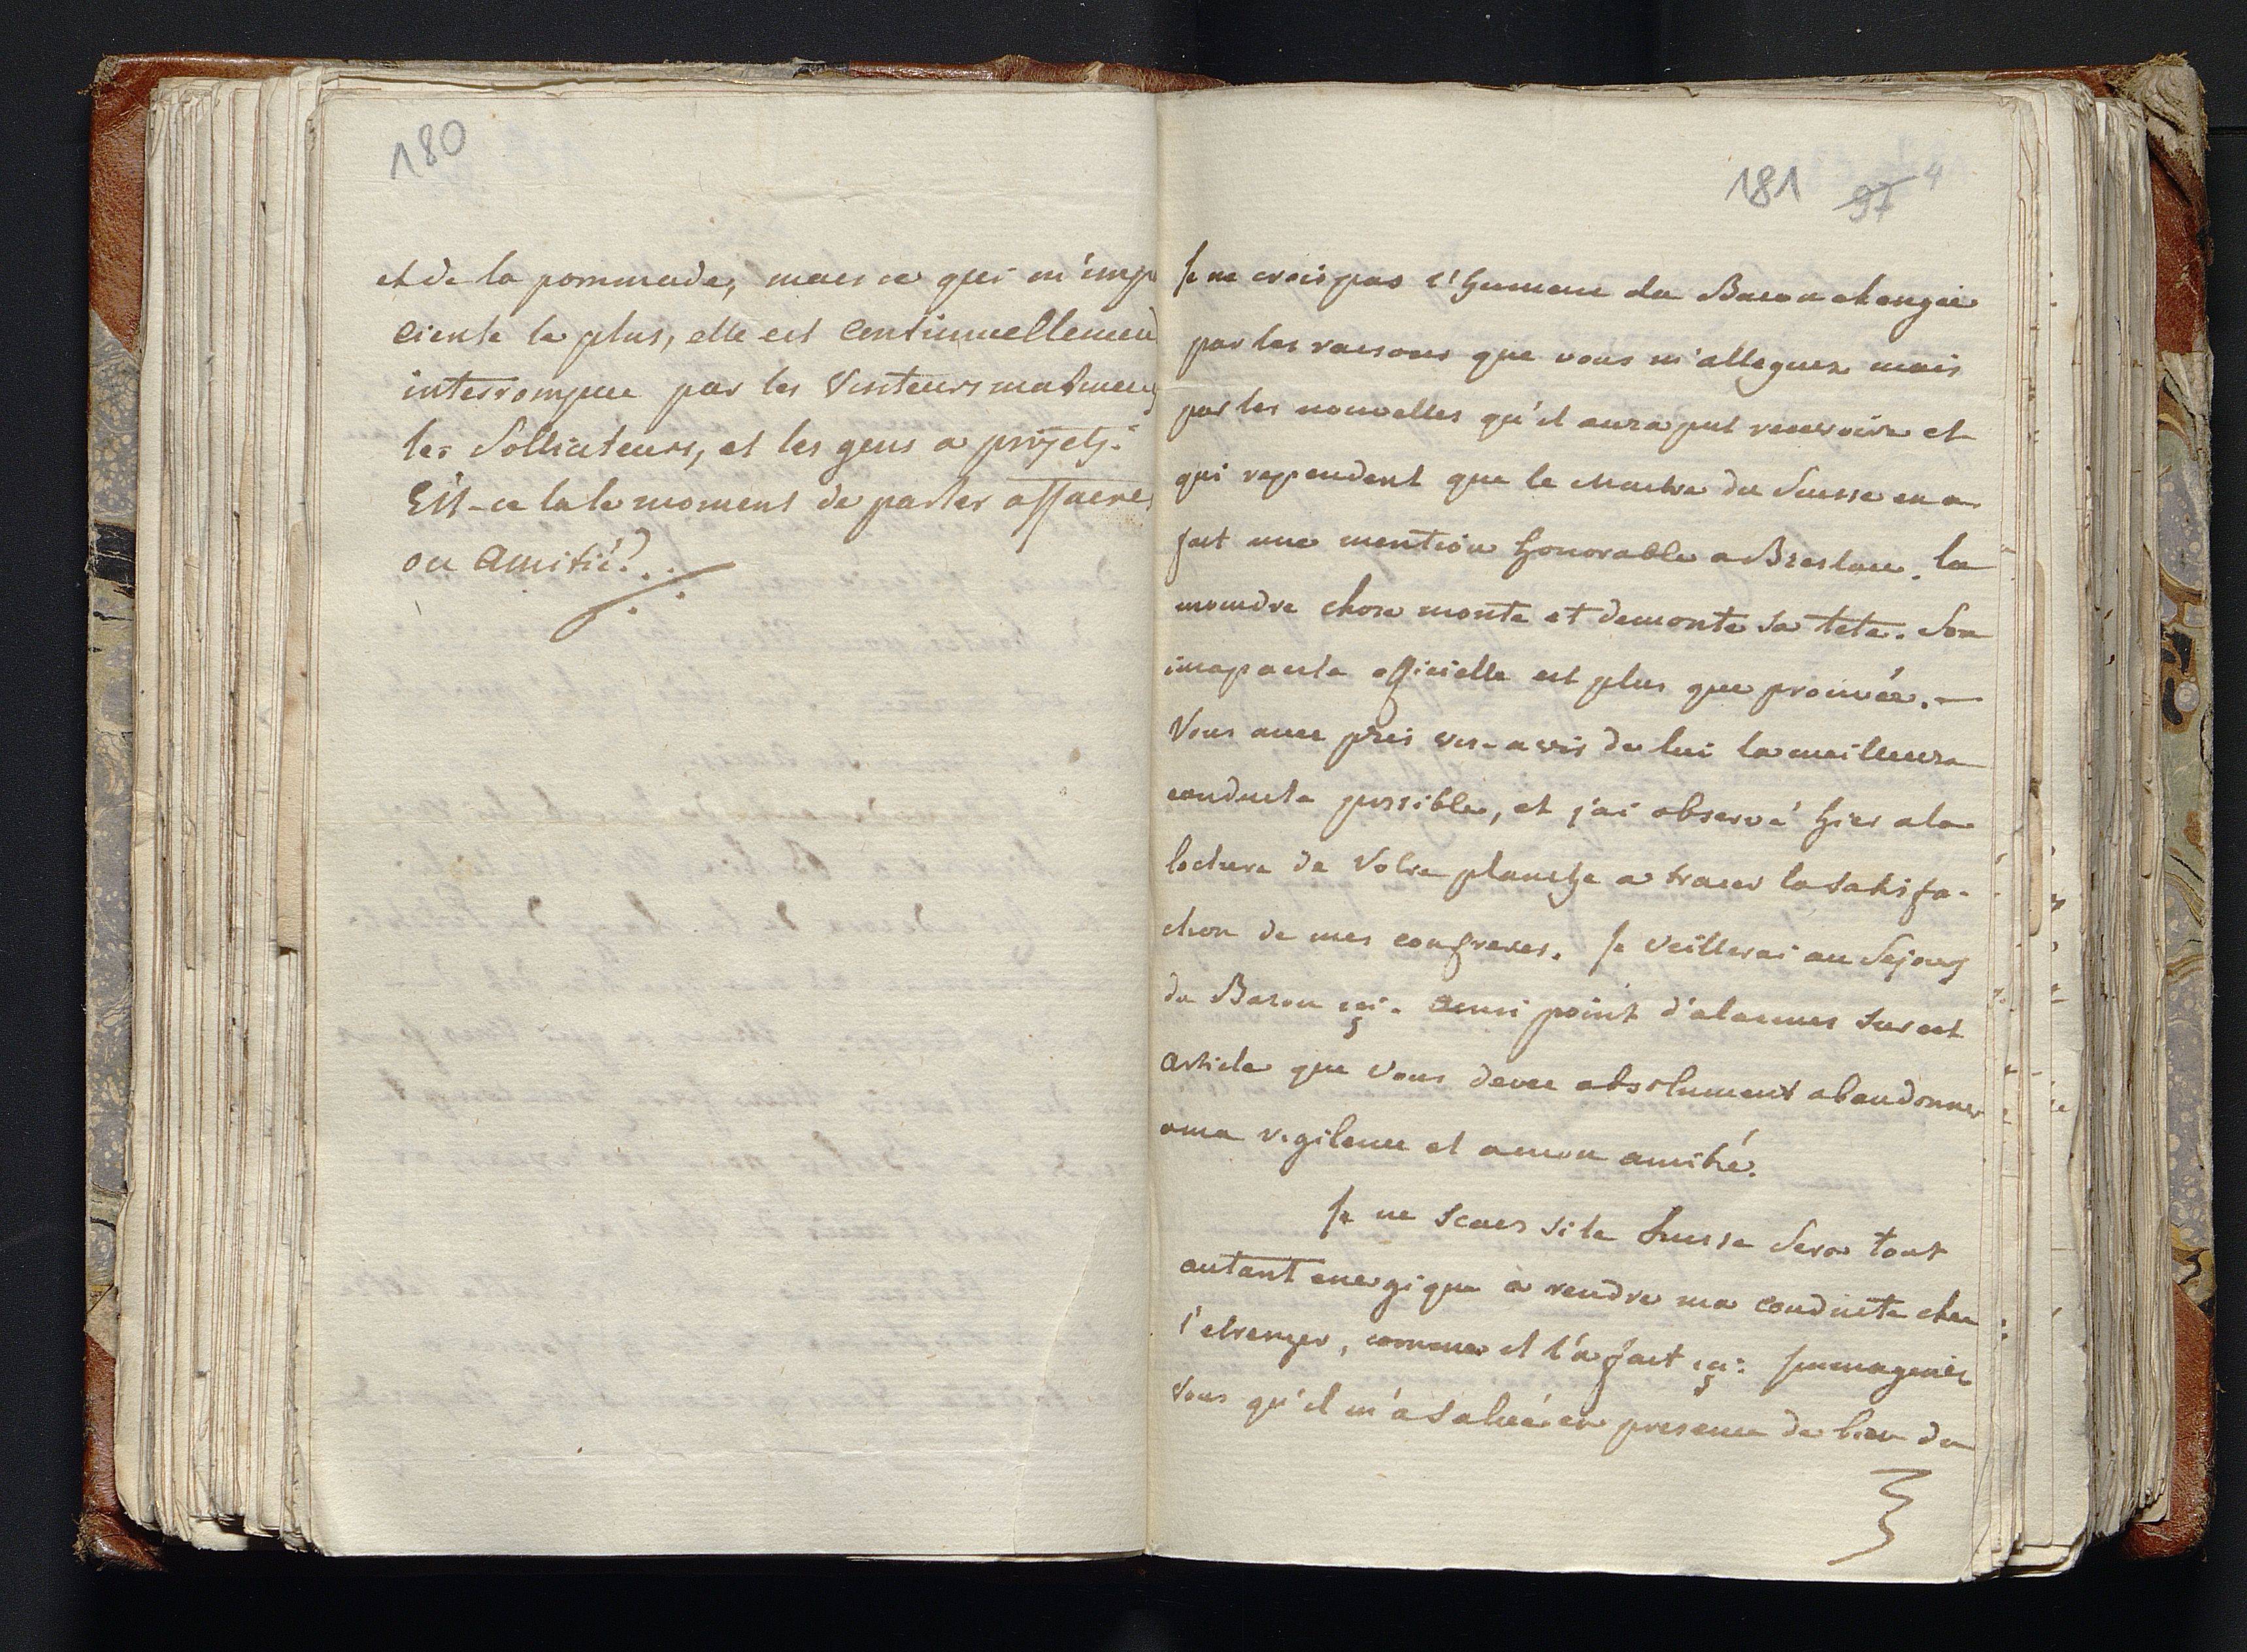 180
et de la pommade, mais ce qui m'imp
ciente le plus, elle est continuellement
interrompue par les Visiteurs matineuy
les Solliciteurs, et les gens a projets.
Est-ce la le moment de parler affaires
ou Amitié? . .
181 97 4
Je ne crois pas l'humeur du Baron changée
par les raisons que vous m'alleguez mais
par les nouvelles qu'il aura put recevoire et
qui rependent que le Maitre du Suisse en a
fait une mention honorable a Breslau. la
moindre chose monte et demonte sa tete. Son
incapacite officielle est plus que prouvée. —
Vous avez pris vis-a vis de lui la meilleure
conduite possible, et j'ai observé hier a la
lecture de Votre planche a tracer la satisfa-
ction de mes confreres. Je veillerai au Sejour
du Baron içi. ainsi point d'alarmes sur cet
article que vous devez absolument abandonner
a ma vigilence et a mon amitié.
Je ne scais si le Suisse sera tout
autant energique a rendre ma conduite chez
l'etranger, comme il l'a fait içi: Immaginez
vous qu'il m'a saluée en presence de bien du